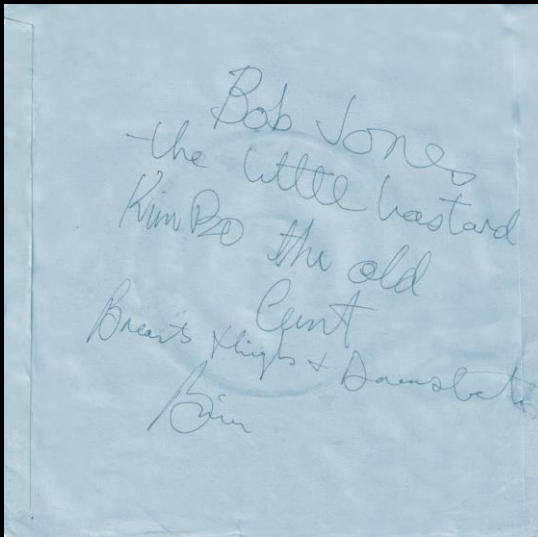 Bob Jones
the little bastard
Kim Bo the old
Cunt
Breasts thighs +